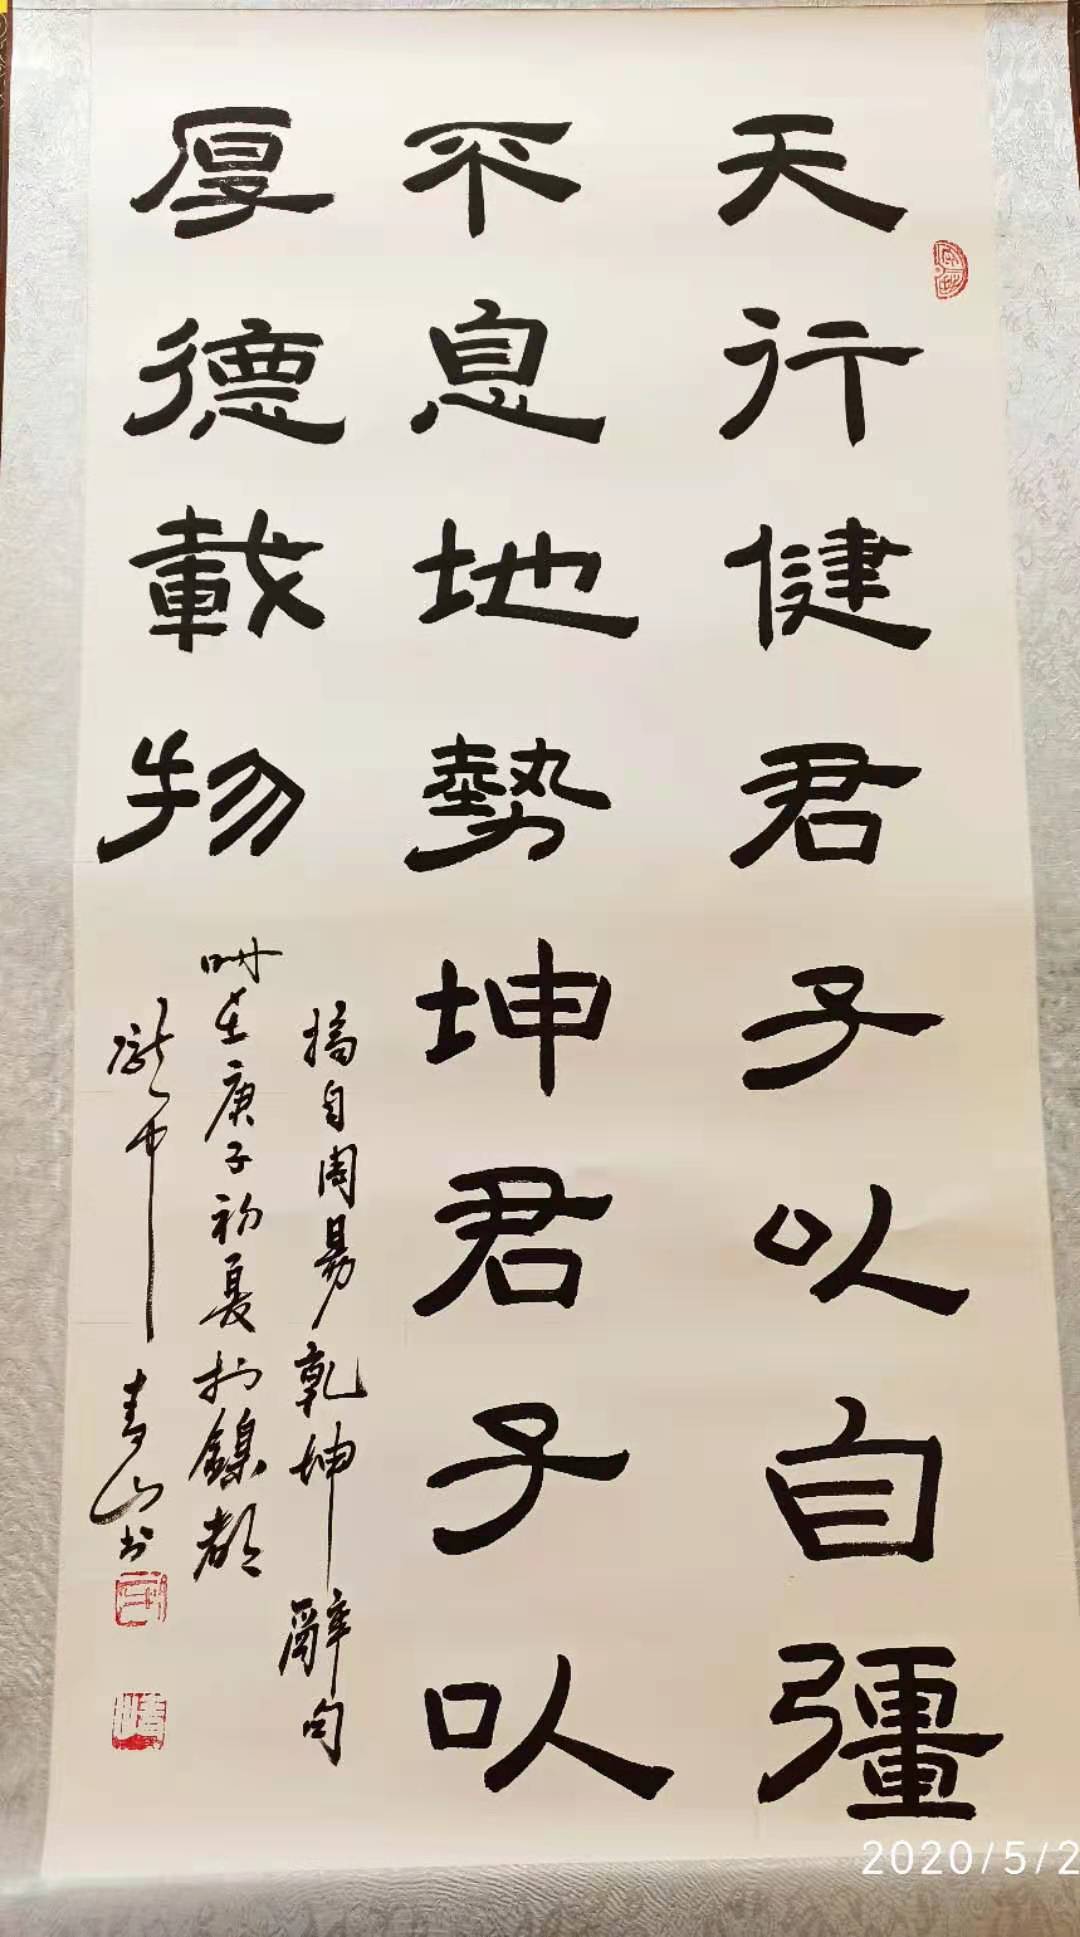 天行健君子以自彊
不息地勢坤君子以
厚德載物
摘自周易乾坤辭句
时在庚子初夏於鎳都
龍中青山书
2020/5/2